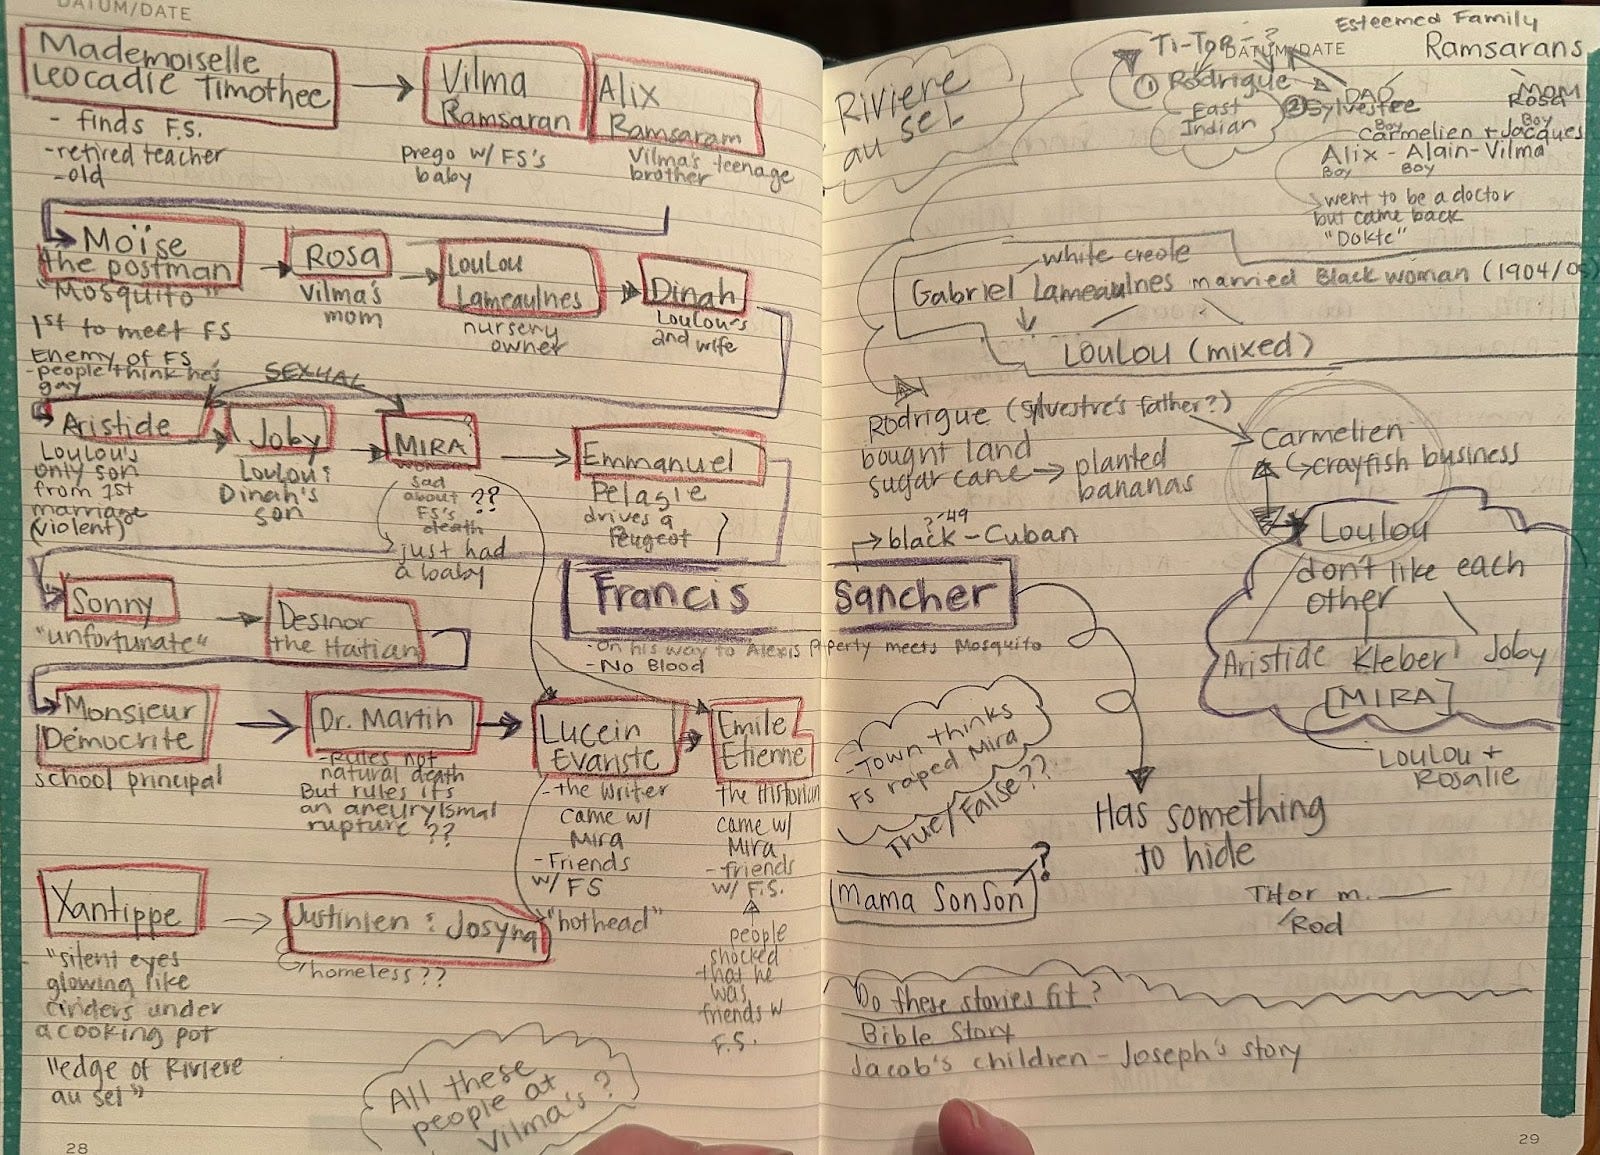 DATUM/DATE
Mademoiselle
Leocadie Timothee
- finds F.S.
-retired teacher
-old
Vilma
Ramsaran
prego w/ FS's
baby
Alix
Ramsaram
Vilma's teenage
brother
Moïse
the postman
"Mosquito"
1st to meet FS
Enemy of FS
-people think he's
gay
Rosa
Vilma's
mom
Loulou
Lameaulnes
nursery
owner
Dinah
Loulou's
2nd wife
SEXUAL
Aristide
Loulou's
only son
from 1st
marriage
(violent)
Joby
Loulou &
Dinah's
son
MIRA
sad
about ??
FS's
death
just had
a baby
Emmanuel
Pelagie
drives a
Peugeot
Sonny
"unfortunate"
Desinor
the Haitian
Monsieur
Démocrite
school principal
Dr. Martin
-Rules not
natural death
But rules it's
an aneurylsmal
rupture ??
Lucein
Evariste
-the writer
came w/
Mira
-Friends
w/ FS
"hothead"
Emile
Etienne
the Historian
came w/
Mira
-friends
w/ F.S.
people
shocked
that he
was
friends w
F.S.
Xantippe
"silent eyes
glowing like
cinders under
a cooking pot
"edge of Riviere
au sel"
Justinien & Josyna
homeless??
All these
people at
Vilma's?
28
Esteemed Family
Ramsarans
DATUM/DATE
Riviere
au sel
Ti-Tor - ?
① Rodrigue
East
Indian
DAD
② Sylvestre
MOM
Rosa
Boy
Boy
Carmelien + Jacques
Alix - Alain - Vilma
Boy
Boy
went to be a doctor
but came back
"Dokte"
white creole
Gabriel Lameaulnes married Black woman (1904/05)
Loulou (mixed)
Rodrigue (Sylvestre's father?)
bought land
sugar cane → planted
bananas
Carmelien
crayfish business
Loulou
don't like each
other
Aristide Kleber Joby
[MIRA]
Loulou +
Rosalie
? '49
black - Cuban
Francis Sancher
-On his way to Alexis Property meets Mosquito
- No Blood
-Town thinks
FS raped Mira
True/False??
Has something
to hide
Mama Sonson ?
THor m.
Rod
Do these stories fit?
Bible Story
Jacob's children - Joseph's story
29